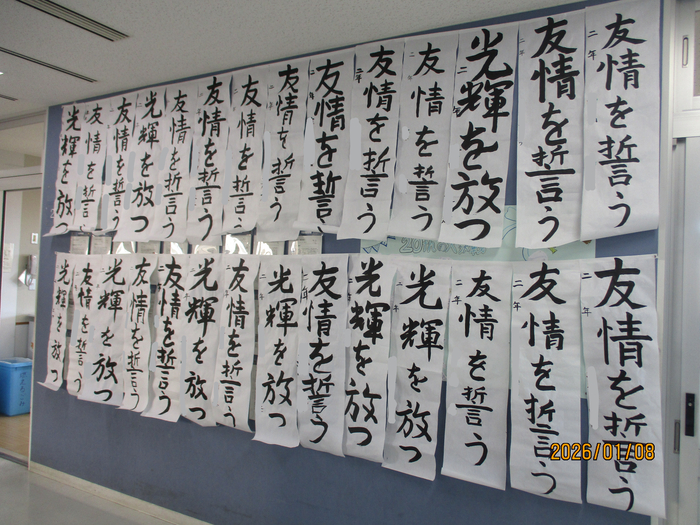 友情を誓う
二年
友情を誓う
二年
光輝を放つ
二年
友情を誓う
二年
友情を誓う
二年
友情を誓う
二年
友情を誓う
友情を誓う
友情を誓う
友情を誓う
光輝を放つ
友情を誓う
友情を誓う
光輝を放つ
友情を誓う
二年
友情を誓う
二年
友情を誓う
二年
光輝を放つ
二年
光輝を放つ
二年
友情を誓う
二年
光輝を放つ
二年
友情を誓う
二年
光輝を放つ
友情を誓う
友情を誓う
光輝を放つ
友情を誓う
光輝を放つ
2026/01/08